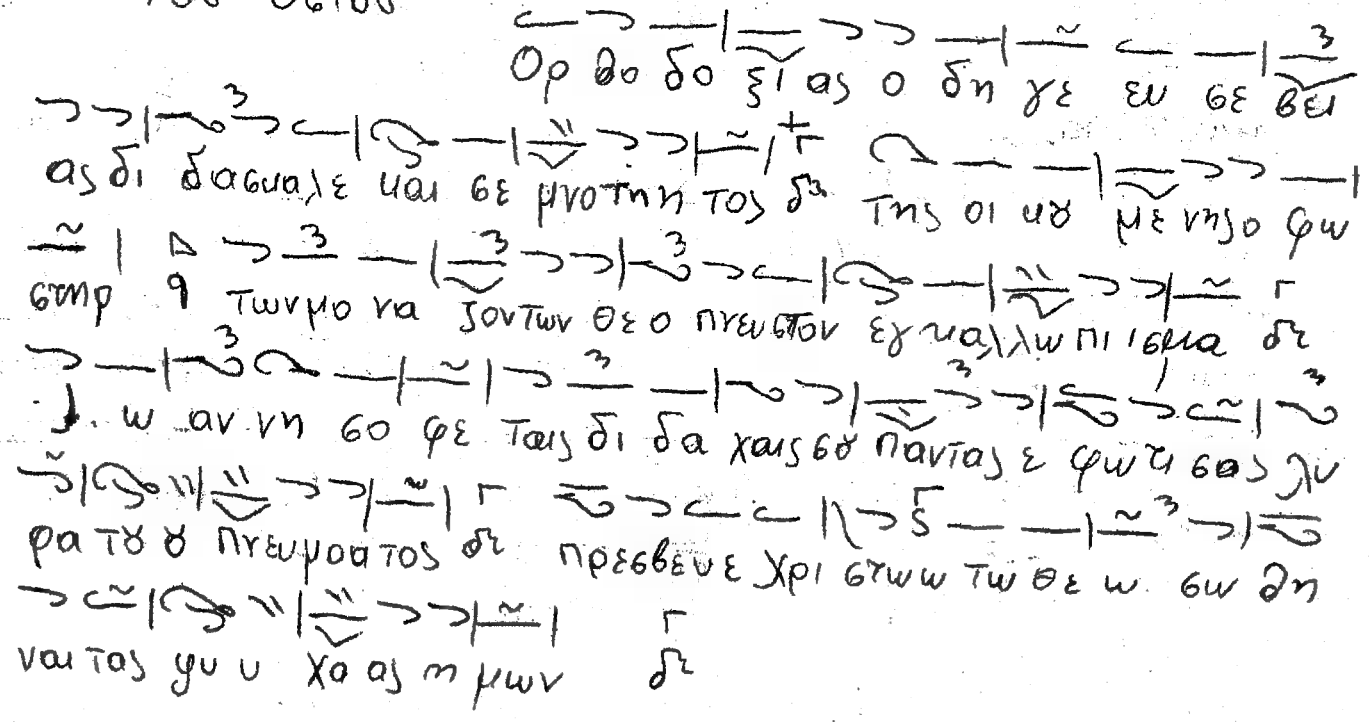 Ορ θο δο ξι ας ο δη γε ευ σε βει
ας δι δασκαλε και σε μνοτη η τος της οι κȣ με νης ο φω
στηρ των μο να ζοντων θε ο πνευστον εγ καλλω πι ισμα
ω αν νη σο φε ταις δι δα χαις σȣ παντας ε φω τι σας λυ
ρα τȣ ȣ πνευμα α τος πρεσβευε χρι στω ω τω θε ω σω θη
ναι τας ψυ υ χα ας η μων